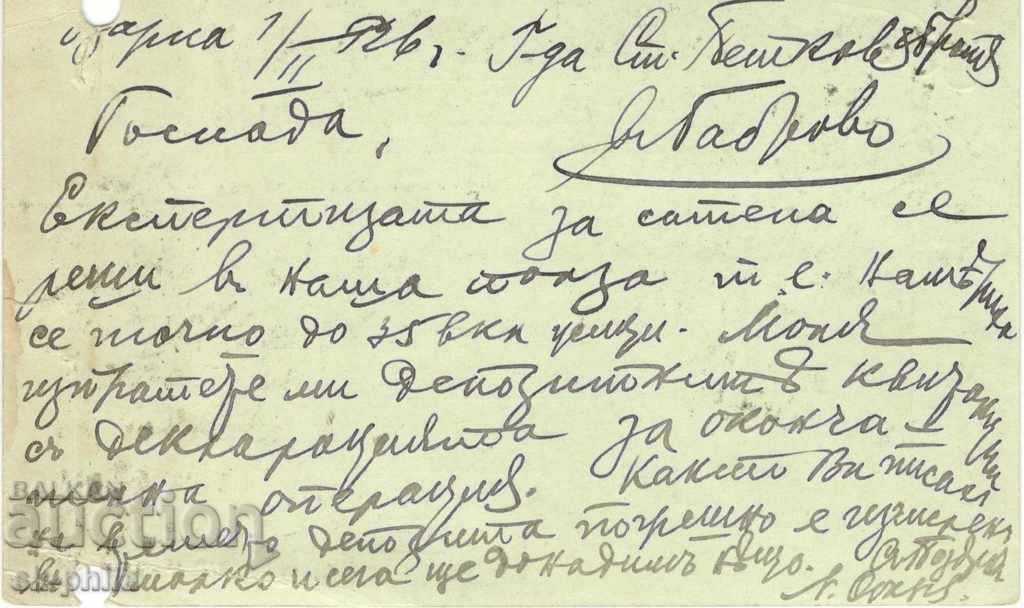 Варна 1/II 926 г. Г-да Ст. Петков & братя
Господа,
в Габрово
Експертизата за сатена се
реши въ наша полза т. е. намѣриха
се точно до 35 вкл нишки. Моля
изпратете ми депозитнитѣ квитанции
съ декларацията за оконча-
телна операция. Както Ви писах
депозита погрешно е изчислен
малко и сега ще докадимъ нѣщо. Съ поздрав
BALKAN
auction